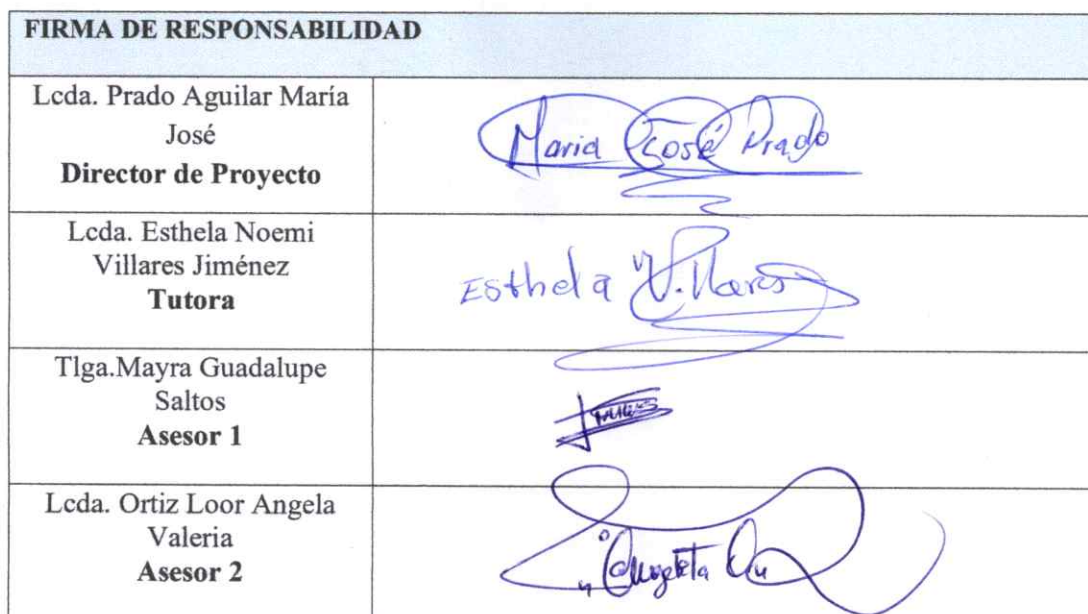 FIRMA DE RESPONSABILIDAD
Lcda. Prado Aguilar María
José
Director de Proyecto
Maria José Prado
Lcda. Esthela Noemi
Villares Jiménez
Tutora
Esthela Villares
Tlga.Mayra Guadalupe
Saltos
Asesor 1
Lcda. Ortiz Loor Angela
Valeria
Asesor 2